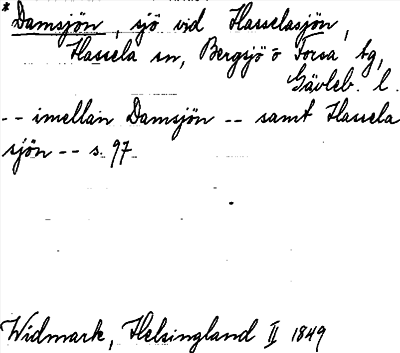 * Damsjön, sjö vid Hasselasjön,
Hassela sn, Bergsjö o Forsa tg,
Gävleb. l.
-- imellan Damsjön -- samt Hassela
sjön -- s. 97
Widmark, Helsingland II 1849